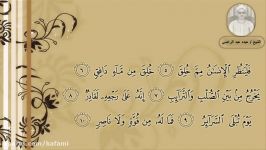 الشيخ / عبده عبد الراضى
فَلْيَنظُرِ الْإِنسَانُ مِمَّ خُلِقَ ﴿٥﴾ خُلِقَ مِن مَّاءٍ دَافِقٍ ﴿٦﴾
يَخْرُجُ مِن بَيْنِ الصُّلْبِ وَالتَّرَائِبِ ﴿٧﴾ إِنَّهُ عَلَىٰ رَجْعِهِ لَقَادِرٌ ﴿٨﴾
يَوْمَ تُبْلَى السَّرَائِرُ ﴿٩﴾ فَمَا لَهُ مِن قُوَّةٍ وَلَا نَاصِرٍ ﴿١٠﴾
http://www.youtube.com/user/kafami